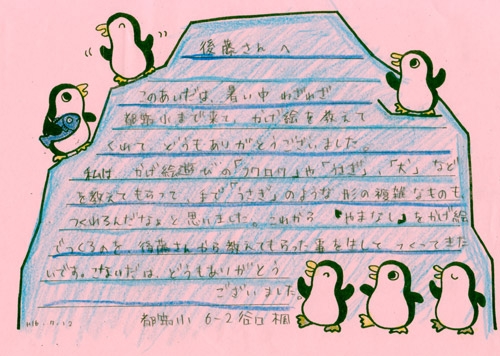 後藤さんへ
このあいだは、暑い中 わざわざ
都路小まで来て、かげ絵を教えて
くれて、どうもありがとうございました。
私は、かげ絵遊びの「フクロウ」や「うさぎ」、「犬」など
を教えてもらって、手で「うさぎ」のような形の複雑なものも
つくれるんだなあと思いました。これから「やまなし」をかげ絵
でつくるのを、後藤さんから教えてもらった事を生して つくってきた
いです。このあいだは、どうもありがとう
ございました。
小 6-2 谷口